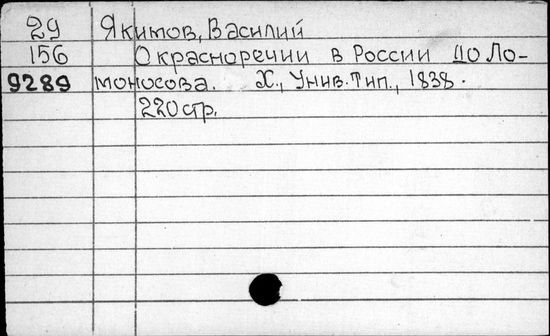 29 Якимов, Василий
156 О красноречии в России до Ло-
9289 моносова. Х., Унив. Тип., 1838.
220 стр.